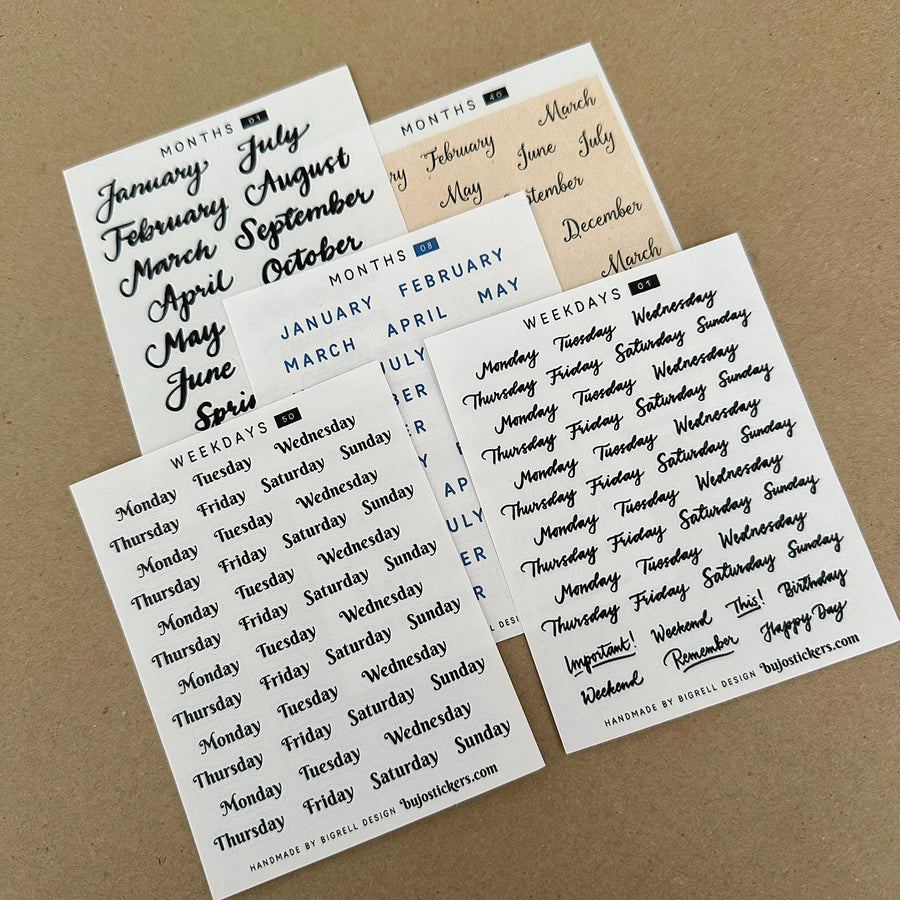 MONTHS 01
January July
February August
March September
April October
May
June
MONTHS 40
March
February June July
May
December
March
MONTHS 08
JANUARY FEBRUARY
MARCH APRIL MAY
WEEKDAYS 50
Monday Tuesday Wednesday
Thursday Friday Saturday Sunday
Monday Tuesday Wednesday
Thursday Friday Saturday Sunday
Monday Tuesday Wednesday
Thursday Friday Saturday Sunday
Monday Tuesday Wednesday
Thursday Friday Saturday Sunday
Monday Tuesday Wednesday
Thursday Friday Saturday Sunday
Monday Tuesday Wednesday
Thursday Friday Saturday Sunday
HANDMADE BY BIGRELL DESIGN bujostickers.com
WEEKDAYS 01
Monday Tuesday Wednesday
Thursday Friday Saturday Sunday
Monday Tuesday Wednesday
Thursday Friday Saturday Sunday
Monday Tuesday Wednesday
Thursday Friday Saturday Sunday
Monday Tuesday Wednesday
Thursday Friday Saturday Sunday
Monday Tuesday Wednesday
Thursday Friday Saturday Sunday
Important! Weekend This! Birthday
Weekend Remember Happy Day
HANDMADE BY BIGRELL DESIGN bujostickers.com